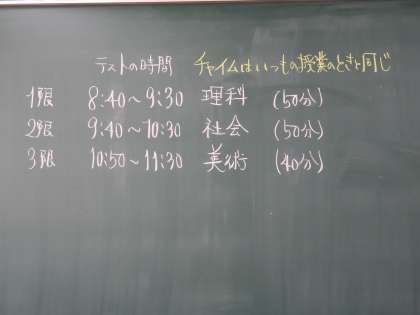 テストの時間 チャイムはいつもの授業のときと同じ
1限 8:40~9:30 理科 (50分)
2限 9:40~10:30 社会 (50分)
3限 10:50~11:30 美術 (40分)